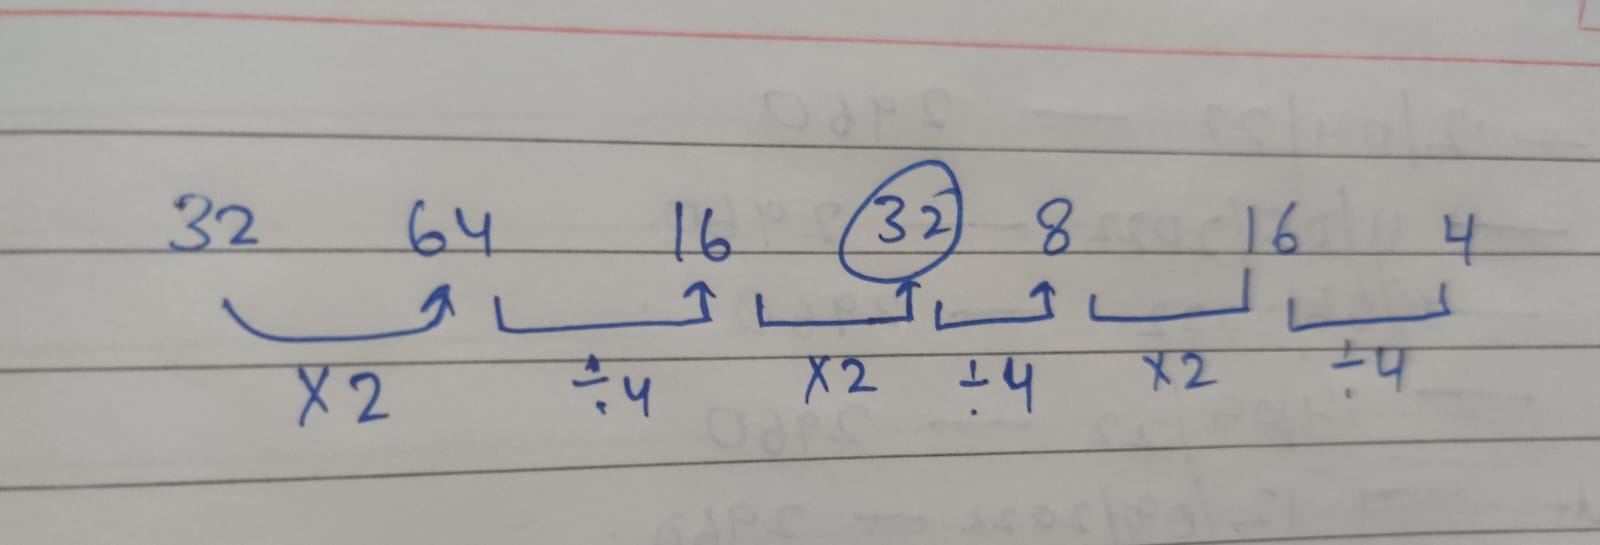 32 64 16 32 8 16 4
×2 ÷4 ×2 ÷4 ×2 ÷4